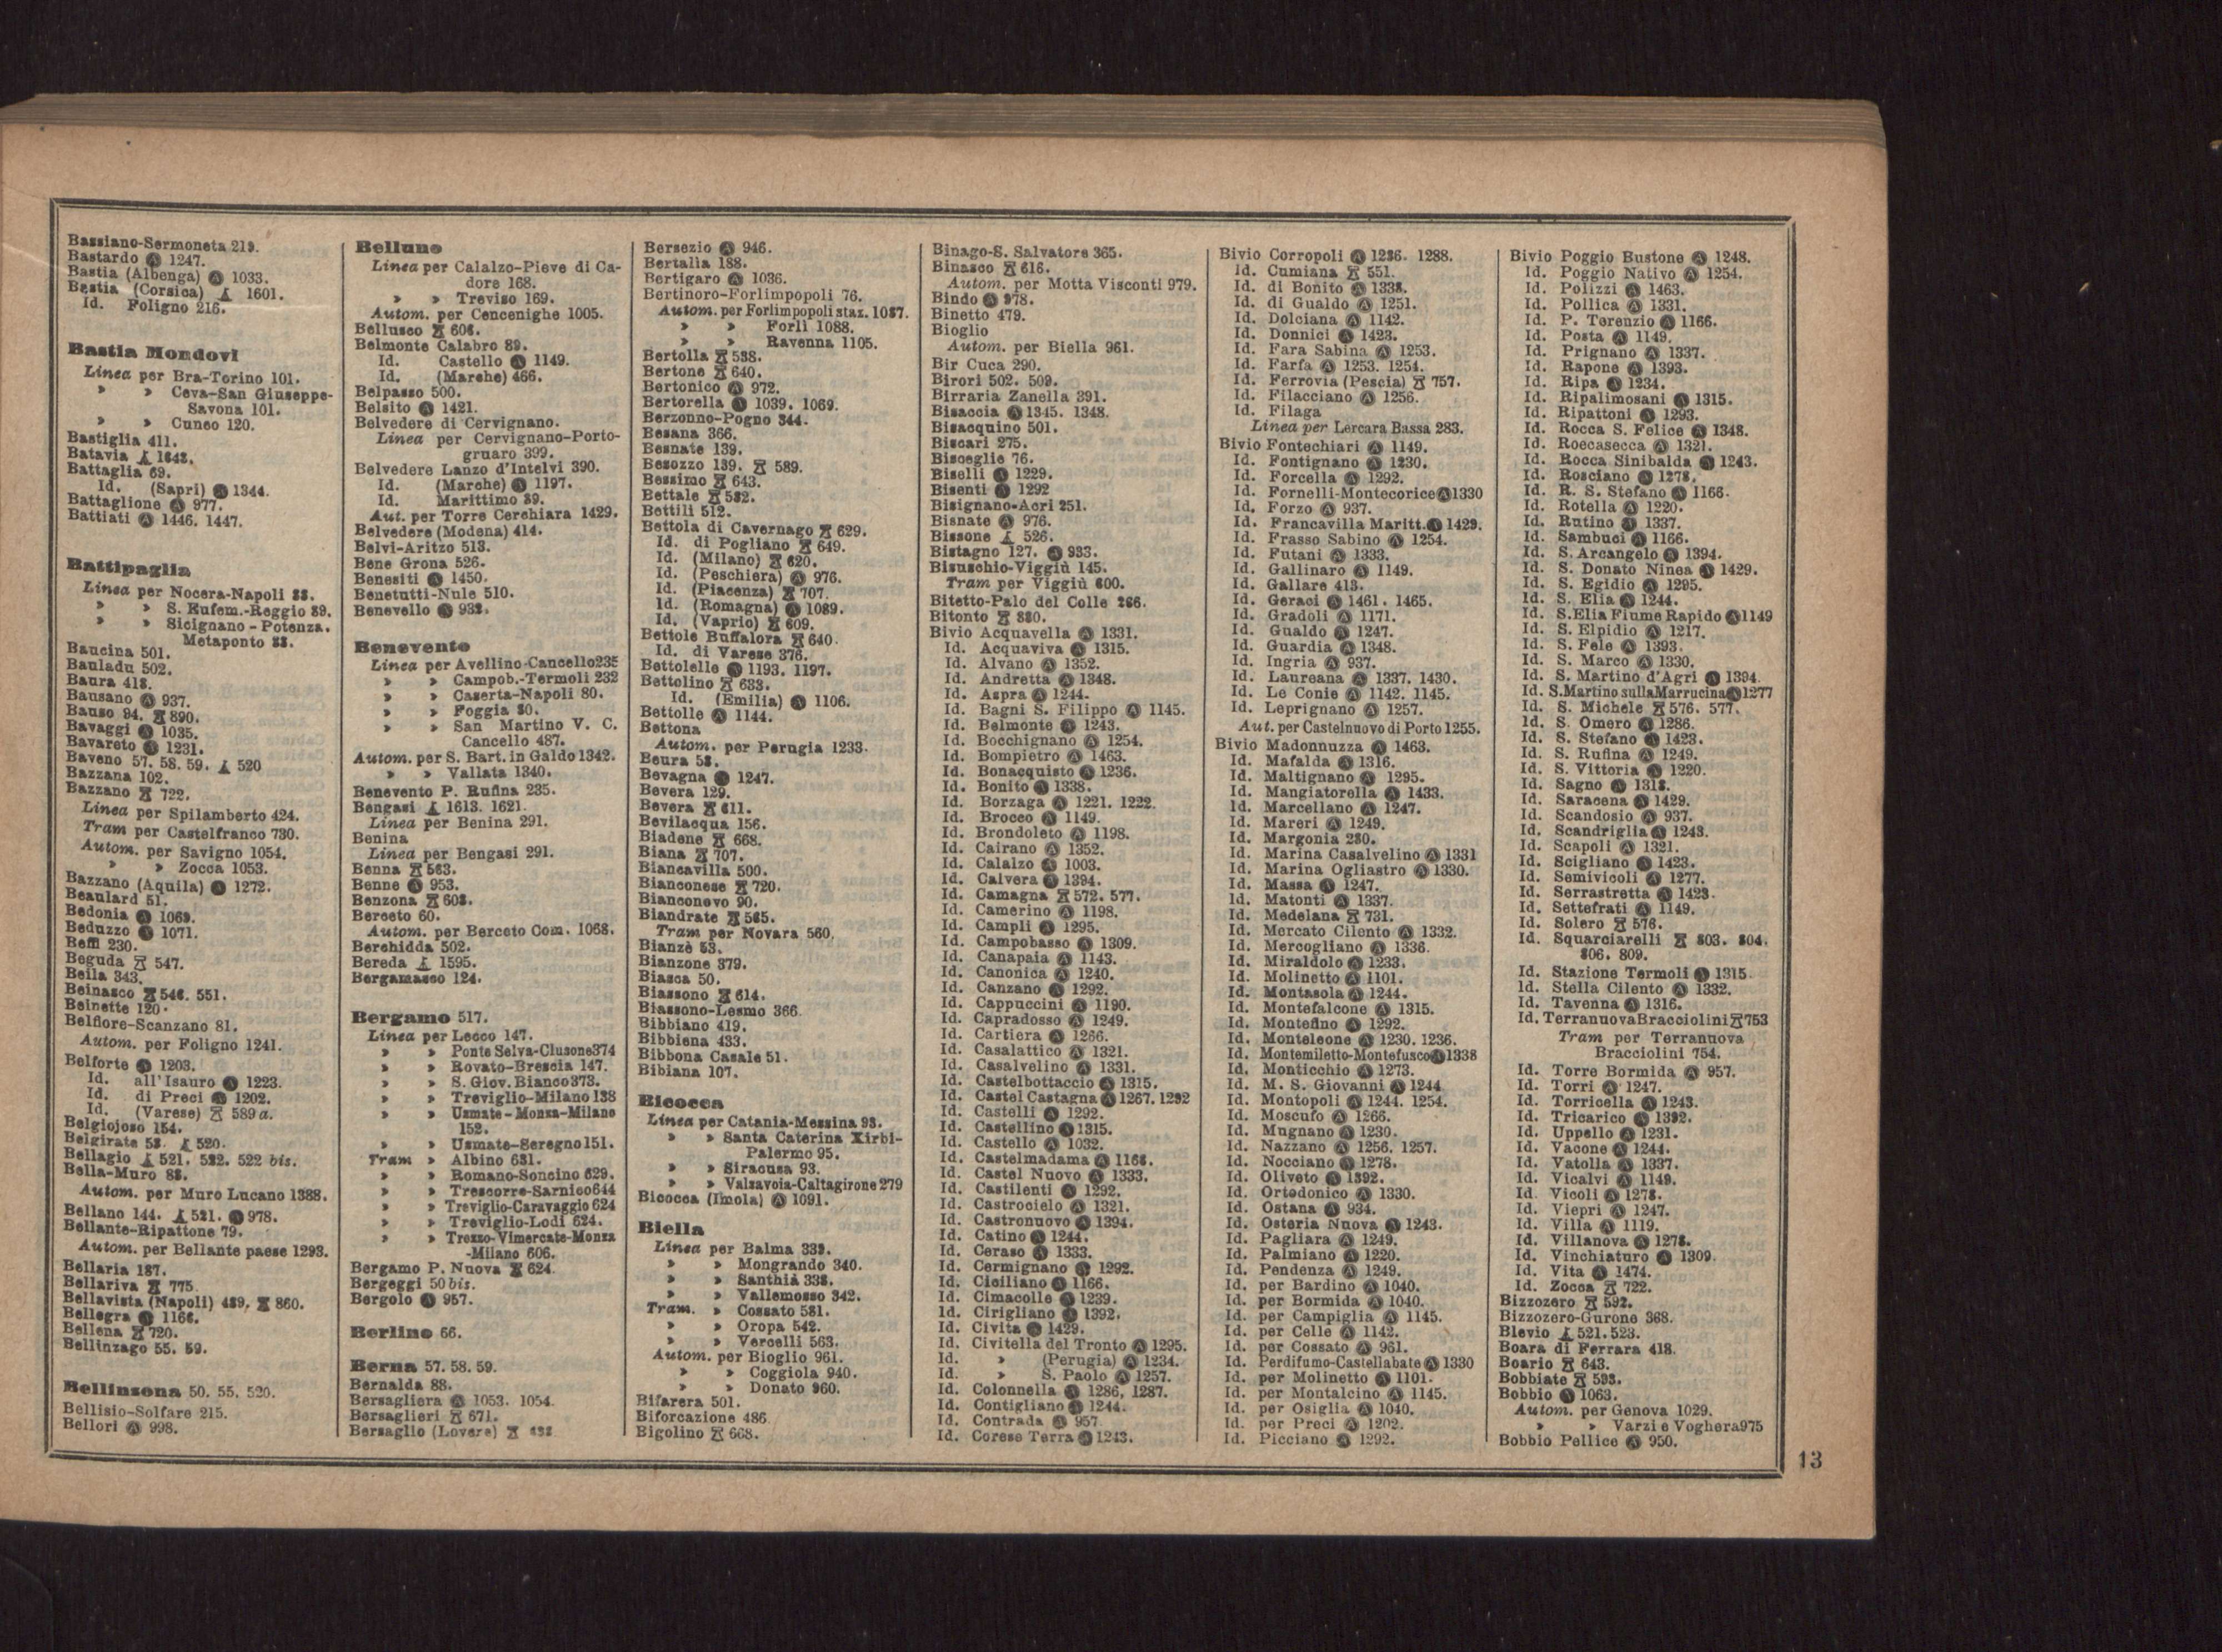 Bassiano-Sermoneta 219.
Bastardo Ⓐ 1247.
Bastia (Albenga) Ⓐ 1033.
Bastia (Corsica) 1601.
Id. Foligno 216.
Bastia Mondovì
Linea per Bra-Torino 101.
» » Ceva-San Giuseppe-
Savona 101.
» » Cuneo 120.
Bastiglia 411.
Batavia 1643.
Battaglia 69.
Id. (Sapri) Ⓐ 1344.
Battaglione Ⓐ 977.
Battiati Ⓐ 1446. 1447.
Battipaglia
Linea per Nocera-Napoli 88.
» » S. Eufem.-Reggio 89.
» » Sicignano-Potenza.
Metaponto 88.
Baucina 501.
Bauladu 502.
Baura 418.
Bausano Ⓐ 937.
Bauso 94. 890.
Bavaggi Ⓐ 1035.
Bavareto Ⓐ 1231.
Baveno 57. 58. 59. 520
Bazzana 102.
Bazzano 722.
Linea per Spilamberto 424.
Tram per Castelfranco 730.
Autom. per Savigno 1054.
» » Zocca 1053.
Bazzano (Aquila) Ⓐ 1272.
Beaulard 51.
Bedonia Ⓐ 1069.
Beduzzo Ⓐ 1071.
Beffi 230.
Beguda 547.
Beila 343.
Beinasco 546. 551.
Beinette 120.
Belfiore-Scanzano 81.
Autom. per Foligno 1241.
Belforte Ⓐ 1203.
Id. all'Isauro Ⓐ 1223.
Id. di Preci Ⓐ 1202.
Id. (Varese) 589 a.
Belgiojoso 154.
Belgirate 58. 520.
Bellagio 521. 522. 522 bis.
Bella-Muro 88.
Autom. per Muro Lucano 1388.
Bellano 144. 521. Ⓐ 978.
Bellante-Ripattone 79.
Autom. per Bellante paese 1293.
Bellaria 187.
Bellariva 775.
Bellavista (Napoli) 489. 860.
Bellegra Ⓐ 1166.
Bellena 720.
Bellinzago 55. 59.
Bellinzona 50. 55. 520.
Bellisio-Solfare 215.
Bellori Ⓐ 998.
Belluno
Linea per Calalzo-Pieve di Ca-
dore 168.
» » Treviso 169.
Autom. per Cencenighe 1005.
Bellusco 606.
Belmonte Calabro 89.
Id. Castello Ⓐ 1149.
Id. (Marche) 466.
Belpasso 500.
Belsito Ⓐ 1421.
Belvedere di Cervignano.
Linea per Cervignano-Porto-
gruaro 399.
Belvedere Lanzo d'Intelvi 390.
Id. (Marche) Ⓐ 1197.
Id. Marittimo 89.
Aut. per Torre Cerchiara 1429.
Belvedere (Modena) 414.
Belvì-Aritzo 513.
Bene Grona 526.
Benesiti Ⓐ 1450.
Benetutti-Nule 510.
Benevello Ⓐ 932.
Benevento
Linea per Avellino-Cancello 235
» » Campob.-Termoli 232
» » Caserta-Napoli 80.
» » Foggia 80.
» » San Martino V. C.
Cancello 487.
Autom. per S. Bart. in Galdo 1342.
» » Vallata 1340.
Benevento P. Rufina 235.
Bengasi 1613. 1621.
Linea per Benina 291.
Benina
Linea per Bengasi 291.
Benna 563.
Benne Ⓐ 953.
Benzona 608.
Berceto 60.
Autom. per Berceto Com. 1068.
Berchidda 502.
Bereda 1595.
Bergamasco 124.
Bergamo 517.
Linea per Lecco 147.
» » Ponte Selva-Clusone 374
» » Rovato-Brescia 147.
» » S. Giov. Bianco 373.
» » Treviglio-Milano 138
» » Usmate-Monza-Milano
152.
» » Usmate-Seregno 151.
Tram » Albino 631.
» » Romano-Soncino 629.
» » Trescorre-Sarnico 644
» » Treviglio-Caravaggio 624
» » Treviglio-Lodi 624.
» » Trezzo-Vimercate-Monza
-Milano 606.
Bergamo P. Nuova 624.
Bergeggi 50 bis.
Bergolo Ⓐ 957.
Berlino 66.
Berna 57. 58. 59.
Bernalda 88.
Bersagliera Ⓐ 1053. 1054.
Bersaglieri 671.
Bersaglio (Lovere)
Bersezio Ⓐ 946.
Bertalia 188.
Bertigaro Ⓐ 1036.
Bertinoro-Forlimpopoli 76.
Autom. per Forlimpopoli staz. 1087.
» » Forlì 1088.
» » Ravenna 1105.
Bertolla 538.
Bertone 640.
Bertonico Ⓐ 972.
Bertorella Ⓐ 1039. 1069.
Berzonno-Pogno 344.
Besana 366.
Besnate 139.
Besozzo 139. 589.
Bessimo 643.
Bettale 532.
Bettili 512.
Bettola di Cavernago 629.
Id. di Pogliano 649.
Id. (Milano) 620.
Id. (Peschiera) Ⓐ 976.
Id. (Piacenza) 707.
Id. (Romagna) Ⓐ 1089.
Id. (Vaprio) 609.
Bettole Buffalora 640.
Id. di Varese 376.
Bettolelle Ⓐ 1193. 1197.
Bettolino 633.
Id. (Emilia) Ⓐ 1106.
Bettolle Ⓐ 1144.
Bettona
Autom. per Perugia 1233.
Beura 58.
Bevagna Ⓐ 1247.
Bevera 129.
Bevera 611.
Bevilacqua 156.
Biadene 668.
Biana 707.
Biancavilla 500.
Bianconese 720.
Bianconovo 90.
Biandrate 565.
Tram per Novara 560.
Bianzè 53.
Bianzone 379.
Biasca 50.
Biassono 614.
Biassono-Lesmo 366.
Bibbiano 419.
Bibbiena 433.
Bibbona Casale 51.
Bibiana 107.
Bicocca
Linea per Catania-Messina 93.
» » Santa Caterina Xirbi-
Palermo 95.
» » Siracusa 93.
» » Valsavoia-Caltagirone 279
Bicocca (Imola) Ⓐ 1091.
Biella
Linea per Balma 339.
» » Mongrando 340.
» » Santhià 338.
» » Vallemosso 342.
Tram. » Cossato 581.
» » Oropa 542.
» » Vercelli 563.
Autom. per Bioglio 961.
» » Coggiola 940.
» » Donato 960.
Bifarera 501.
Biforcazione 486.
Bigolino 668.
Binago-S. Salvatore 365.
Binasco 616.
Autom. per Motta Visconti 979.
Bindo Ⓐ 978.
Binetto 479.
Bioglio
Autom. per Biella 961.
Bir Cuca 290.
Birori 502. 509.
Birraria Zanella 391.
Bisaccia Ⓐ 1345. 1348.
Bisacquino 501.
Biscari 275.
Bisceglie 76.
Biselli Ⓐ 1229.
Bisenti Ⓐ 1292
Bisignano-Acri 251.
Bisnate Ⓐ 976.
Bissone 526.
Bistagno 127. Ⓐ 933.
Bisuschio-Viggiù 145.
Tram per Viggiù 600.
Bitetto-Palo del Colle 286.
Bitonto 880.
Bivio Acquavella Ⓐ 1331.
Id. Acquaviva Ⓐ 1315.
Id. Alvano Ⓐ 1352.
Id. Andretta Ⓐ 1348.
Id. Aspra Ⓐ 1244.
Id. Bagni S. Filippo Ⓐ 1145.
Id. Belmonte Ⓐ 1243.
Id. Bocchignano Ⓐ 1254.
Id. Bompietro Ⓐ 1463.
Id. Bonacquisto Ⓐ 1236.
Id. Bonito Ⓐ 1338.
Id. Borzaga Ⓐ 1221. 1222.
Id. Brocco Ⓐ 1149.
Id. Brondoleto Ⓐ 1198.
Id. Cairano Ⓐ 1352.
Id. Calalzo Ⓐ 1003.
Id. Calvera Ⓐ 1394.
Id. Camagna 572. 577.
Id. Camerino Ⓐ 1198.
Id. Campli Ⓐ 1295.
Id. Campobasso Ⓐ 1309.
Id. Canapaia Ⓐ 1143.
Id. Canonica Ⓐ 1240.
Id. Canzano Ⓐ 1292.
Id. Cappuccini Ⓐ 1190.
Id. Capradosso Ⓐ 1249.
Id. Cartiera Ⓐ 1266.
Id. Casalattico Ⓐ 1321.
Id. Casalvelino Ⓐ 1331.
Id. Castelbottaccio Ⓐ 1315.
Id. Castel Castagna Ⓐ 1267. 1292
Id. Castelli Ⓐ 1292.
Id. Castellino Ⓐ 1315.
Id. Castello Ⓐ 1032.
Id. Castelmadama Ⓐ 1168.
Id. Castel Nuovo Ⓐ 1333.
Id. Castilenti Ⓐ 1292.
Id. Castrocielo Ⓐ 1321.
Id. Castronuovo Ⓐ 1394.
Id. Catino Ⓐ 1244.
Id. Ceraso Ⓐ 1333.
Id. Cermignano Ⓐ 1292.
Id. Ciciliano Ⓐ 1166.
Id. Cimacolle Ⓐ 1239.
Id. Cirigliano Ⓐ 1392.
Id. Civita Ⓐ 1429.
Id. Civitella del Tronto Ⓐ 1295.
Id. » (Perugia) Ⓐ 1234.
Id. » S. Paolo Ⓐ 1257.
Id. Colonnella Ⓐ 1286, 1287.
Id. Contigliano Ⓐ 1244.
Id. Contrada Ⓐ 957.
Id. Corese Terra Ⓐ 1243.
Bivio Corropoli Ⓐ 1286. 1288.
Id. Cumiana 551.
Id. di Bonito Ⓐ 1338.
Id. di Gualdo Ⓐ 1251.
Id. Dolciana Ⓐ 1142.
Id. Donnici Ⓐ 1423.
Id. Fara Sabina Ⓐ 1253.
Id. Farfa Ⓐ 1253. 1254.
Id. Ferrovia (Pescia) 757.
Id. Filacciano Ⓐ 1256.
Id. Filaga
Linea per Lercara Bassa 283.
Bivio Fontechiari Ⓐ 1149.
Id. Fontignano Ⓐ 1230.
Id. Forcella Ⓐ 1292.
Id. Fornelli-Montecorice Ⓐ 1330
Id. Forzo Ⓐ 937.
Id. Francavilla Maritt. Ⓐ 1429.
Id. Frasso Sabino Ⓐ 1254.
Id. Futani Ⓐ 1333.
Id. Gallinaro Ⓐ 1149.
Id. Gallare 413.
Id. Geraci Ⓐ 1461. 1465.
Id. Gradoli Ⓐ 1171.
Id. Gualdo Ⓐ 1247.
Id. Guardia Ⓐ 1348.
Id. Ingria Ⓐ 937.
Id. Laureana Ⓐ 1337. 1430.
Id. Le Conie Ⓐ 1142. 1145.
Id. Leprignano Ⓐ 1257.
Aut. per Castelnuovo di Porto 1255.
Bivio Madonnuzza Ⓐ 1463.
Id. Mafalda Ⓐ 1316.
Id. Maltignano Ⓐ 1295.
Id. Mangiatorella Ⓐ 1433.
Id. Marcellano Ⓐ 1247.
Id. Mareri Ⓐ 1249.
Id. Margonia 280.
Id. Marina Casalvelino Ⓐ 1331
Id. Marina Ogliastro Ⓐ 1330.
Id. Massa Ⓐ 1247.
Id. Matonti Ⓐ 1337.
Id. Medelana 731.
Id. Mercato Cilento Ⓐ 1332.
Id. Mercogliano Ⓐ 1336.
Id. Miraldolo Ⓐ 1233.
Id. Molinetto Ⓐ 1101.
Id. Montasola Ⓐ 1244.
Id. Montefalcone Ⓐ 1315.
Id. Montefino Ⓐ 1292.
Id. Monteleone Ⓐ 1230. 1236.
Id. Montemiletto-Montefusco Ⓐ 1338
Id. Monticchio Ⓐ 1273.
Id. M. S. Giovanni Ⓐ 1244
Id. Montopoli Ⓐ 1244. 1254.
Id. Moscufo Ⓐ 1266.
Id. Mugnano Ⓐ 1230.
Id. Nazzano Ⓐ 1256. 1257.
Id. Nocciano Ⓐ 1278.
Id. Oliveto Ⓐ 1392.
Id. Ortodonico Ⓐ 1330.
Id. Ostana Ⓐ 934.
Id. Osteria Nuova Ⓐ 1243.
Id. Pagliara Ⓐ 1249.
Id. Palmiano Ⓐ 1220.
Id. Pendenza Ⓐ 1249.
Id. per Bardino Ⓐ 1040.
Id. per Bormida Ⓐ 1040.
Id. per Campiglia Ⓐ 1145.
Id. per Celle Ⓐ 1142.
Id. per Cossato Ⓐ 961.
Id. Perdifumo-Castellabate Ⓐ 1330
Id. per Molinetto Ⓐ 1101.
Id. per Montalcino Ⓐ 1145.
Id. per Osiglia Ⓐ 1040.
Id. per Preci Ⓐ 1202.
Id. Picciano Ⓐ 1292.
Bivio Poggio Bustone Ⓐ 1248.
Id. Poggio Nativo Ⓐ 1254.
Id. Polizzi Ⓐ 1463.
Id. Pollica Ⓐ 1331.
Id. P. Terenzio Ⓐ 1166.
Id. Posta Ⓐ 1149.
Id. Prignano Ⓐ 1337.
Id. Rapone Ⓐ 1393.
Id. Ripa Ⓐ 1234.
Id. Ripalimosani Ⓐ 1315.
Id. Ripattoni Ⓐ 1293.
Id. Rocca S. Felice Ⓐ 1348.
Id. Roccasecca Ⓐ 1321.
Id. Rocca Sinibalda Ⓐ 1243.
Id. Rosciano Ⓐ 1278.
Id. R. S. Stefano Ⓐ 1166.
Id. Rotella Ⓐ 1220.
Id. Rutino Ⓐ 1337.
Id. Sambuci Ⓐ 1166.
Id. S. Arcangelo Ⓐ 1394.
Id. S. Donato Ninea Ⓐ 1429.
Id. S. Egidio Ⓐ 1295.
Id. S. Elia Ⓐ 1244.
Id. S. Elia Fiume Rapido Ⓐ 1149
Id. S. Elpidio Ⓐ 1217.
Id. S. Fele Ⓐ 1393.
Id. S. Marco Ⓐ 1330.
Id. S. Martino d'Agri Ⓐ 1394.
Id. S. Martino sulla Marrucina Ⓐ 1277
Id. S. Michele 576. 577.
Id. S. Omero Ⓐ 1286.
Id. S. Stefano Ⓐ 1423.
Id. S. Rufina Ⓐ 1249.
Id. S. Vittoria Ⓐ 1220.
Id. Sagno Ⓐ 1318.
Id. Saracena Ⓐ 1429.
Id. Scandosio Ⓐ 937.
Id. Scandriglia Ⓐ 1243.
Id. Scapoli Ⓐ 1321.
Id. Scigliano Ⓐ 1423.
Id. Semivicoli Ⓐ 1277.
Id. Serrastretta Ⓐ 1423.
Id. Settefrati Ⓐ 1149.
Id. Solero 576.
Id. Squarciarelli 803. 804.
806. 809.
Id. Stazione Termoli Ⓐ 1315.
Id. Stella Cilento Ⓐ 1332.
Id. Tavenna Ⓐ 1316.
Id. Terranuova Bracciolini 753
Tram per Terranuova
Bracciolini 754.
Id. Torre Bormida Ⓐ 957.
Id. Torri Ⓐ 1247.
Id. Torricella Ⓐ 1243.
Id. Tricarico Ⓐ 1392.
Id. Uppello Ⓐ 1231.
Id. Vacone Ⓐ 1244.
Id. Vatolla Ⓐ 1337.
Id. Vicalvi Ⓐ 1149.
Id. Vicoli Ⓐ 1278.
Id. Viepri Ⓐ 1247.
Id. Villa Ⓐ 1119.
Id. Villanova Ⓐ 1278.
Id. Vinchiaturo Ⓐ 1309.
Id. Vita Ⓐ 1474.
Id. Zocca 722.
Bizzozero 592.
Bizzozero-Gurone 368.
Blevio 521. 523.
Boara di Ferrara 418.
Boario 643.
Bobbiate 593.
Bobbio Ⓐ 1063.
Autom. per Genova 1029.
» » Varzi e Voghera 975
Bobbio Pellice Ⓐ 950.
13